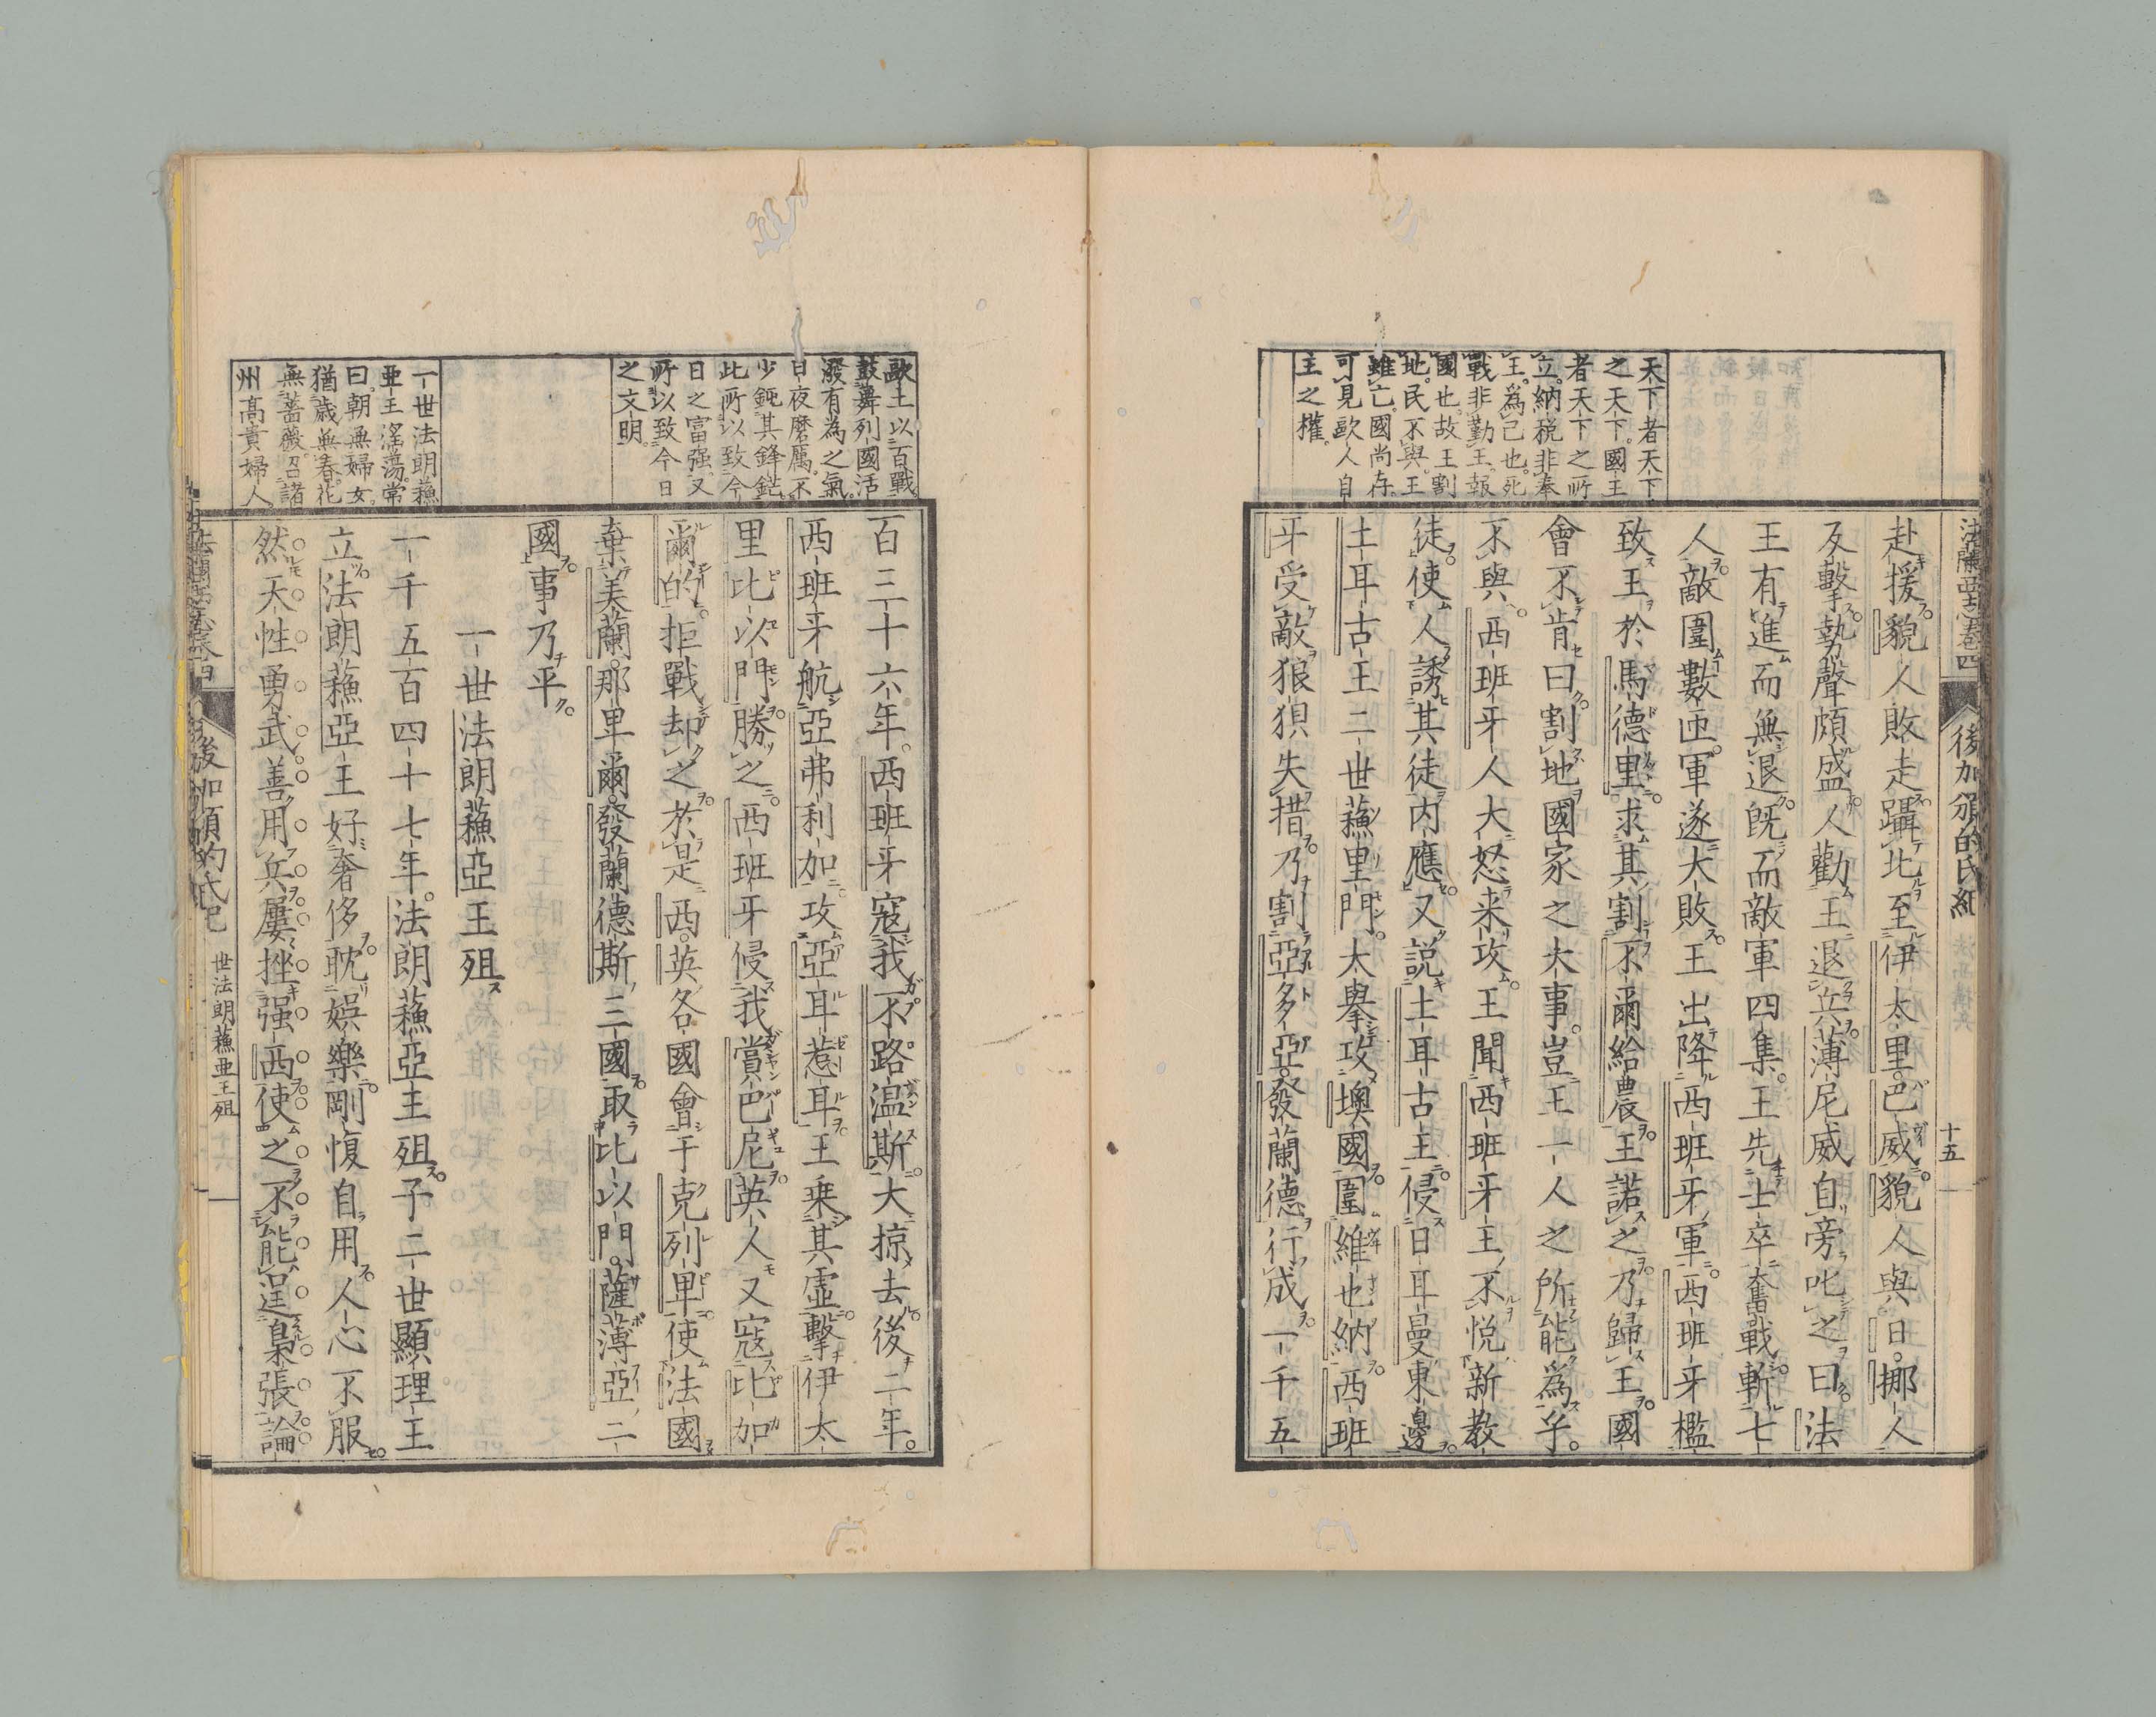 法蘭西志卷四
後加頒的氏紀
十五
天下者天下
之天下國王
者天下之所
立納税非奉
王爲己也死
戰非勤王報
國也故王割
地民不與王
雖亡國尚存
可見歐人自
主之權
赴援貌人敗走躡北至伊太里巴威貌人與日挪人
反擊勢聲頗盛人勸王退兵薄尼威自旁叱之曰法
王有進而無退既而敵軍四集王先士卒奮戰斬七
人敵圍數匝軍遂大敗王出降西班牙軍西班牙檻
致王於馬德里求其割不爾給農王諾之乃歸王國
會不肯曰割地國家之大事豈王一人之所能爲乎
不與西班牙人大怒来攻王聞西班牙王不悦新教
徒使人誘其徒内應又説土耳古王侵日耳曼東邊
土耳古王二世蘓里門大擧攻墺國圍維也納西班
牙受敵狼狽失措乃割亞多亞發蘭德行成一千五
歐土以百戰
鼓舞列國活
潑有為之氣
日夜磨厲不
少鈍其鋒鋩
此所以致今
日之富强又
所以致今日
之文明
一世法朗蘓
亜王淫蕩常
曰朝無婦女
猶歳無春花
無薔薇召諸
州髙貴婦人
百三十六年西班牙寇我不路温斯大掠去後二年
西班牙航亞弗利加攻亞耳惹耳王乗其虚擊伊太
里比以門勝之西班牙侵我賞巴尼英人又寇比加
爾的拒戰却之於是西英各國會于克列卑使法國
棄美蘭那里爾發蘭德斯三國取比以門薩薄亞二
國事乃平
一世法朗蘓亞王殂
一千五百四十七年法朗蘓亞王殂子二世顯理王
立法朗蘓亞王好奢侈耽娯樂剛愎自用人心不服
然天性勇武善用兵屢挫强西使之不能逞梟張論
法蘭西志卷四
後加頒的氏紀
世法朗蘓亜王殂